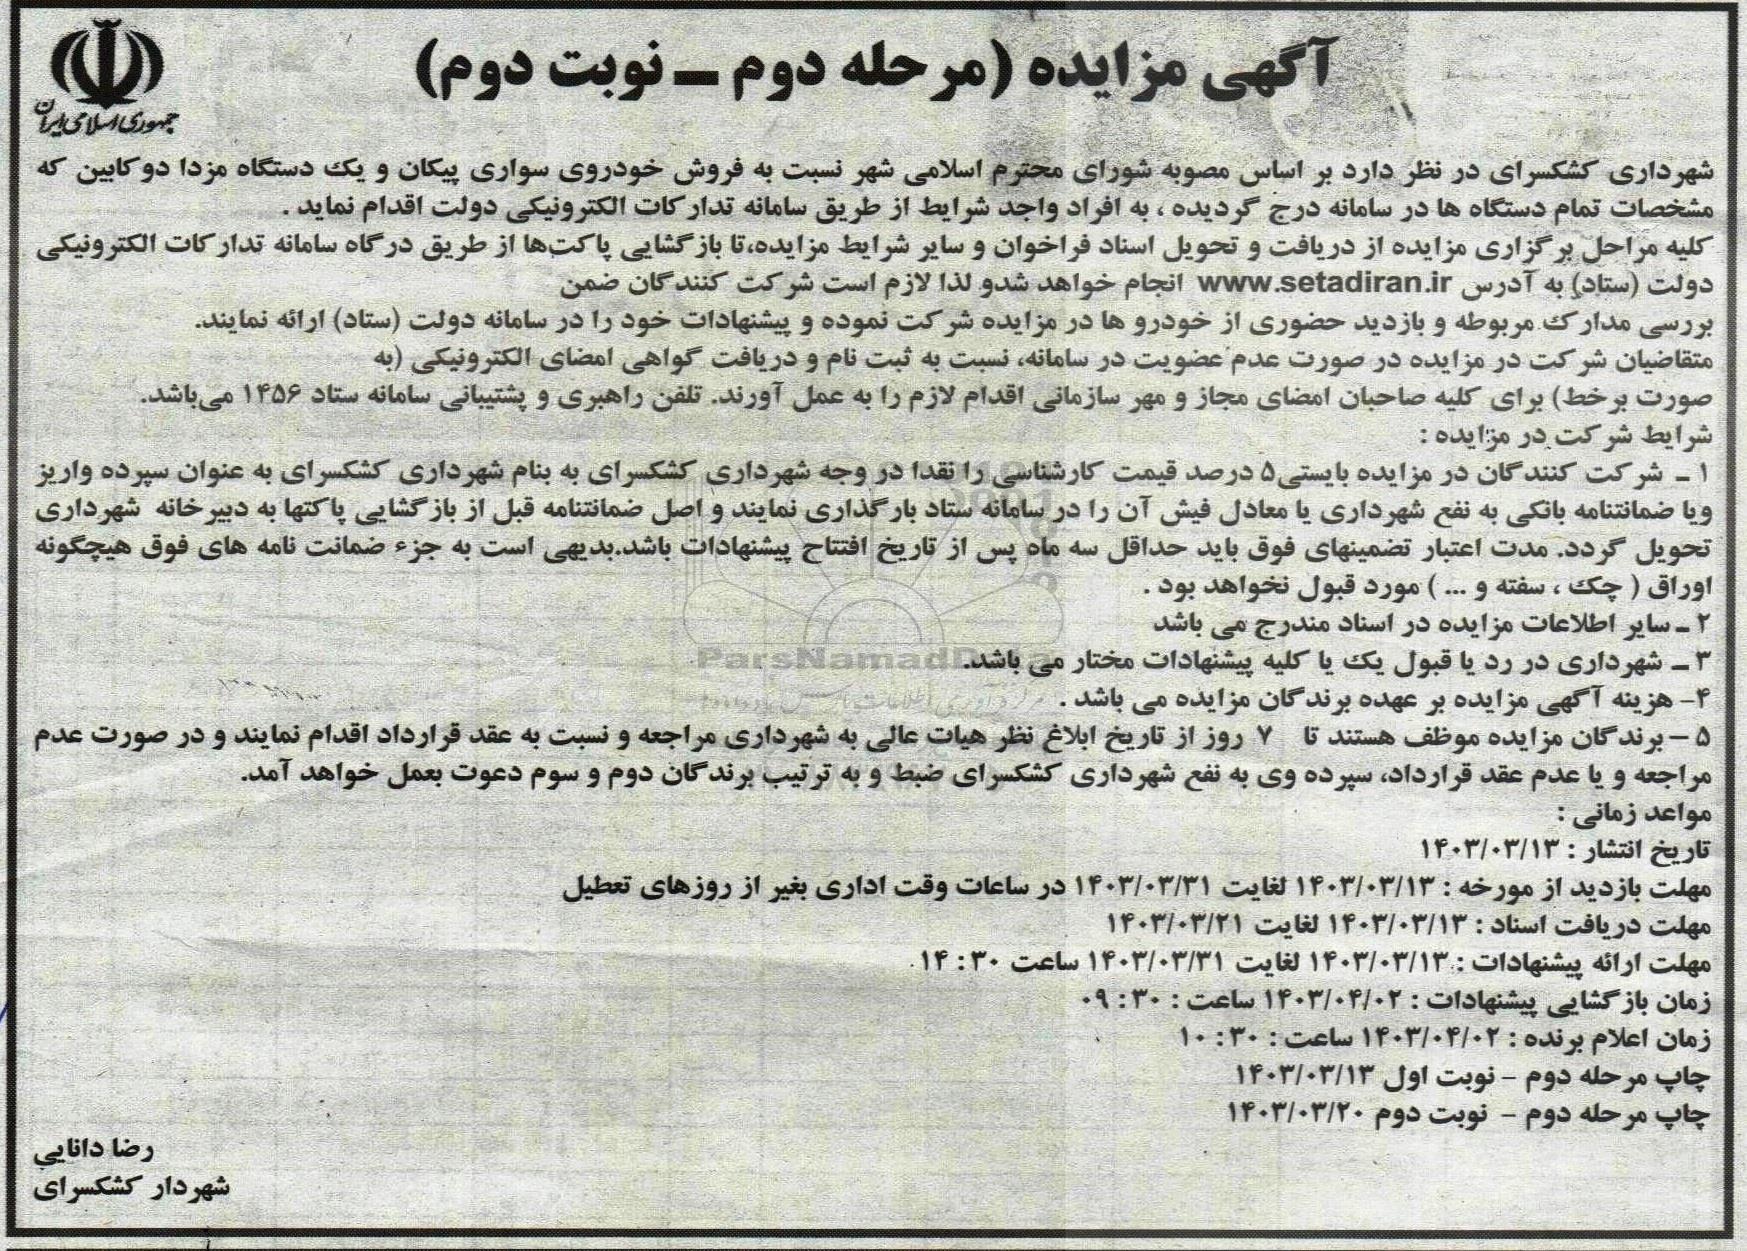 جمهوری اسلامی ایران
آگهی مزایده (مرحله دوم ــ نوبت دوم)
شهرداری کشکسرای در نظر دارد بر اساس مصوبه شورای محترم اسلامی شهر نسبت به فروش خودروی سواری پیکان و یک دستگاه مزدا دوکابین که
مشخصات تمام دستگاه ها در سامانه درج گردیده ، به افراد واجد شرایط از طریق سامانه تدارکات الکترونیکی دولت اقدام نماید .
کلیه مراحل برگزاری مزایده از دریافت و تحویل اسناد فراخوان و سایر شرایط مزایده،تا بازگشایی پاکت‌ها از طریق درگاه سامانه تدارکات الکترونیکی
دولت (ستاد) به آدرس www.setadiran.ir انجام خواهد شدو لذا لازم است شرکت کنندگان ضمن
بررسی مدارک مربوطه و بازدید حضوری از خودرو ها در مزایده شرکت نموده و پیشنهادات خود را در سامانه دولت (ستاد) ارائه نمایند.
متقاضیان شرکت در مزایده در صورت عدم عضویت در سامانه، نسبت به ثبت نام و دریافت گواهی امضای الکترونیکی (به
صورت برخط) برای کلیه صاحبان امضای مجاز و مهر سازمانی اقدام لازم را به عمل آورند. تلفن راهبری و پشتیبانی سامانه ستاد ۱۴۵۶ می‌باشد.
شرایط شرکت در مزایده :
۱ ـ شرکت کنندگان در مزایده بایستی۵ درصد قیمت کارشناسی را نقدا در وجه شهرداری کشکسرای به بنام شهرداری کشکسرای به عنوان سپرده واریز
ویا ضمانتنامه بانکی به نفع شهرداری یا معادل فیش آن را در سامانه ستاد بارگذاری نمایند و اصل ضمانتنامه قبل از بازگشایی پاکتها به دبیرخانه شهرداری
تحویل گردد. مدت اعتبار تضمینهای فوق باید حداقل سه ماه پس از تاریخ افتتاح پیشنهادات باشد.بدیهی است به جزء ضمانت نامه های فوق هیچگونه
اوراق ( چک ، سفته و ... ) مورد قبول نخواهد بود .
۲ ـ سایر اطلاعات مزایده در اسناد مندرج می باشد
۳ ـ شهرداری در رد یا قبول یک یا کلیه پیشنهادات مختار می باشد.
ParsNamadData
۴- هزینه آگهی مزایده بر عهده برندگان مزایده می باشد .
۵ – برندگان مزایده موظف هستند تا ۷ روز از تاریخ ابلاغ نظر هیات عالی به شهرداری مراجعه و نسبت به عقد قرارداد اقدام نمایند و در صورت عدم
مراجعه و یا عدم عقد قرارداد، سپرده وی به نفع شهرداری کشکسرای ضبط و به ترتیب برندگان دوم و سوم دعوت بعمل خواهد آمد.
مواعد زمانی :
تاریخ انتشار : ۱۴۰۳/۰۳/۱۳
مهلت بازدید از مورخه : ۱۴۰۳/۰۳/۱۳ لغایت ۱۴۰۳/۰۳/۳۱ در ساعات وقت اداری بغیر از روزهای تعطیل
مهلت دریافت اسناد : ۱۴۰۳/۰۳/۱۳ لغایت ۱۴۰۳/۰۳/۲۱
مهلت ارائه پیشنهادات : ۱۴۰۳/۰۳/۱۳ لغایت ۱۴۰۳/۰۳/۳۱ ساعت ۳۰ : ۱۴
زمان بازگشایی پیشنهادات : ۱۴۰۳/۰۴/۰۲ ساعت : ۳۰ : ۰۹
زمان اعلام برنده : ۱۴۰۳/۰۴/۰۲ ساعت : ۳۰ : ۱۰
چاپ مرحله دوم – نوبت اول ۱۴۰۳/۰۳/۱۳
چاپ مرحله دوم – نوبت دوم ۱۴۰۳/۰۳/۲۰
رضا دانایی
شهردار کشکسرای